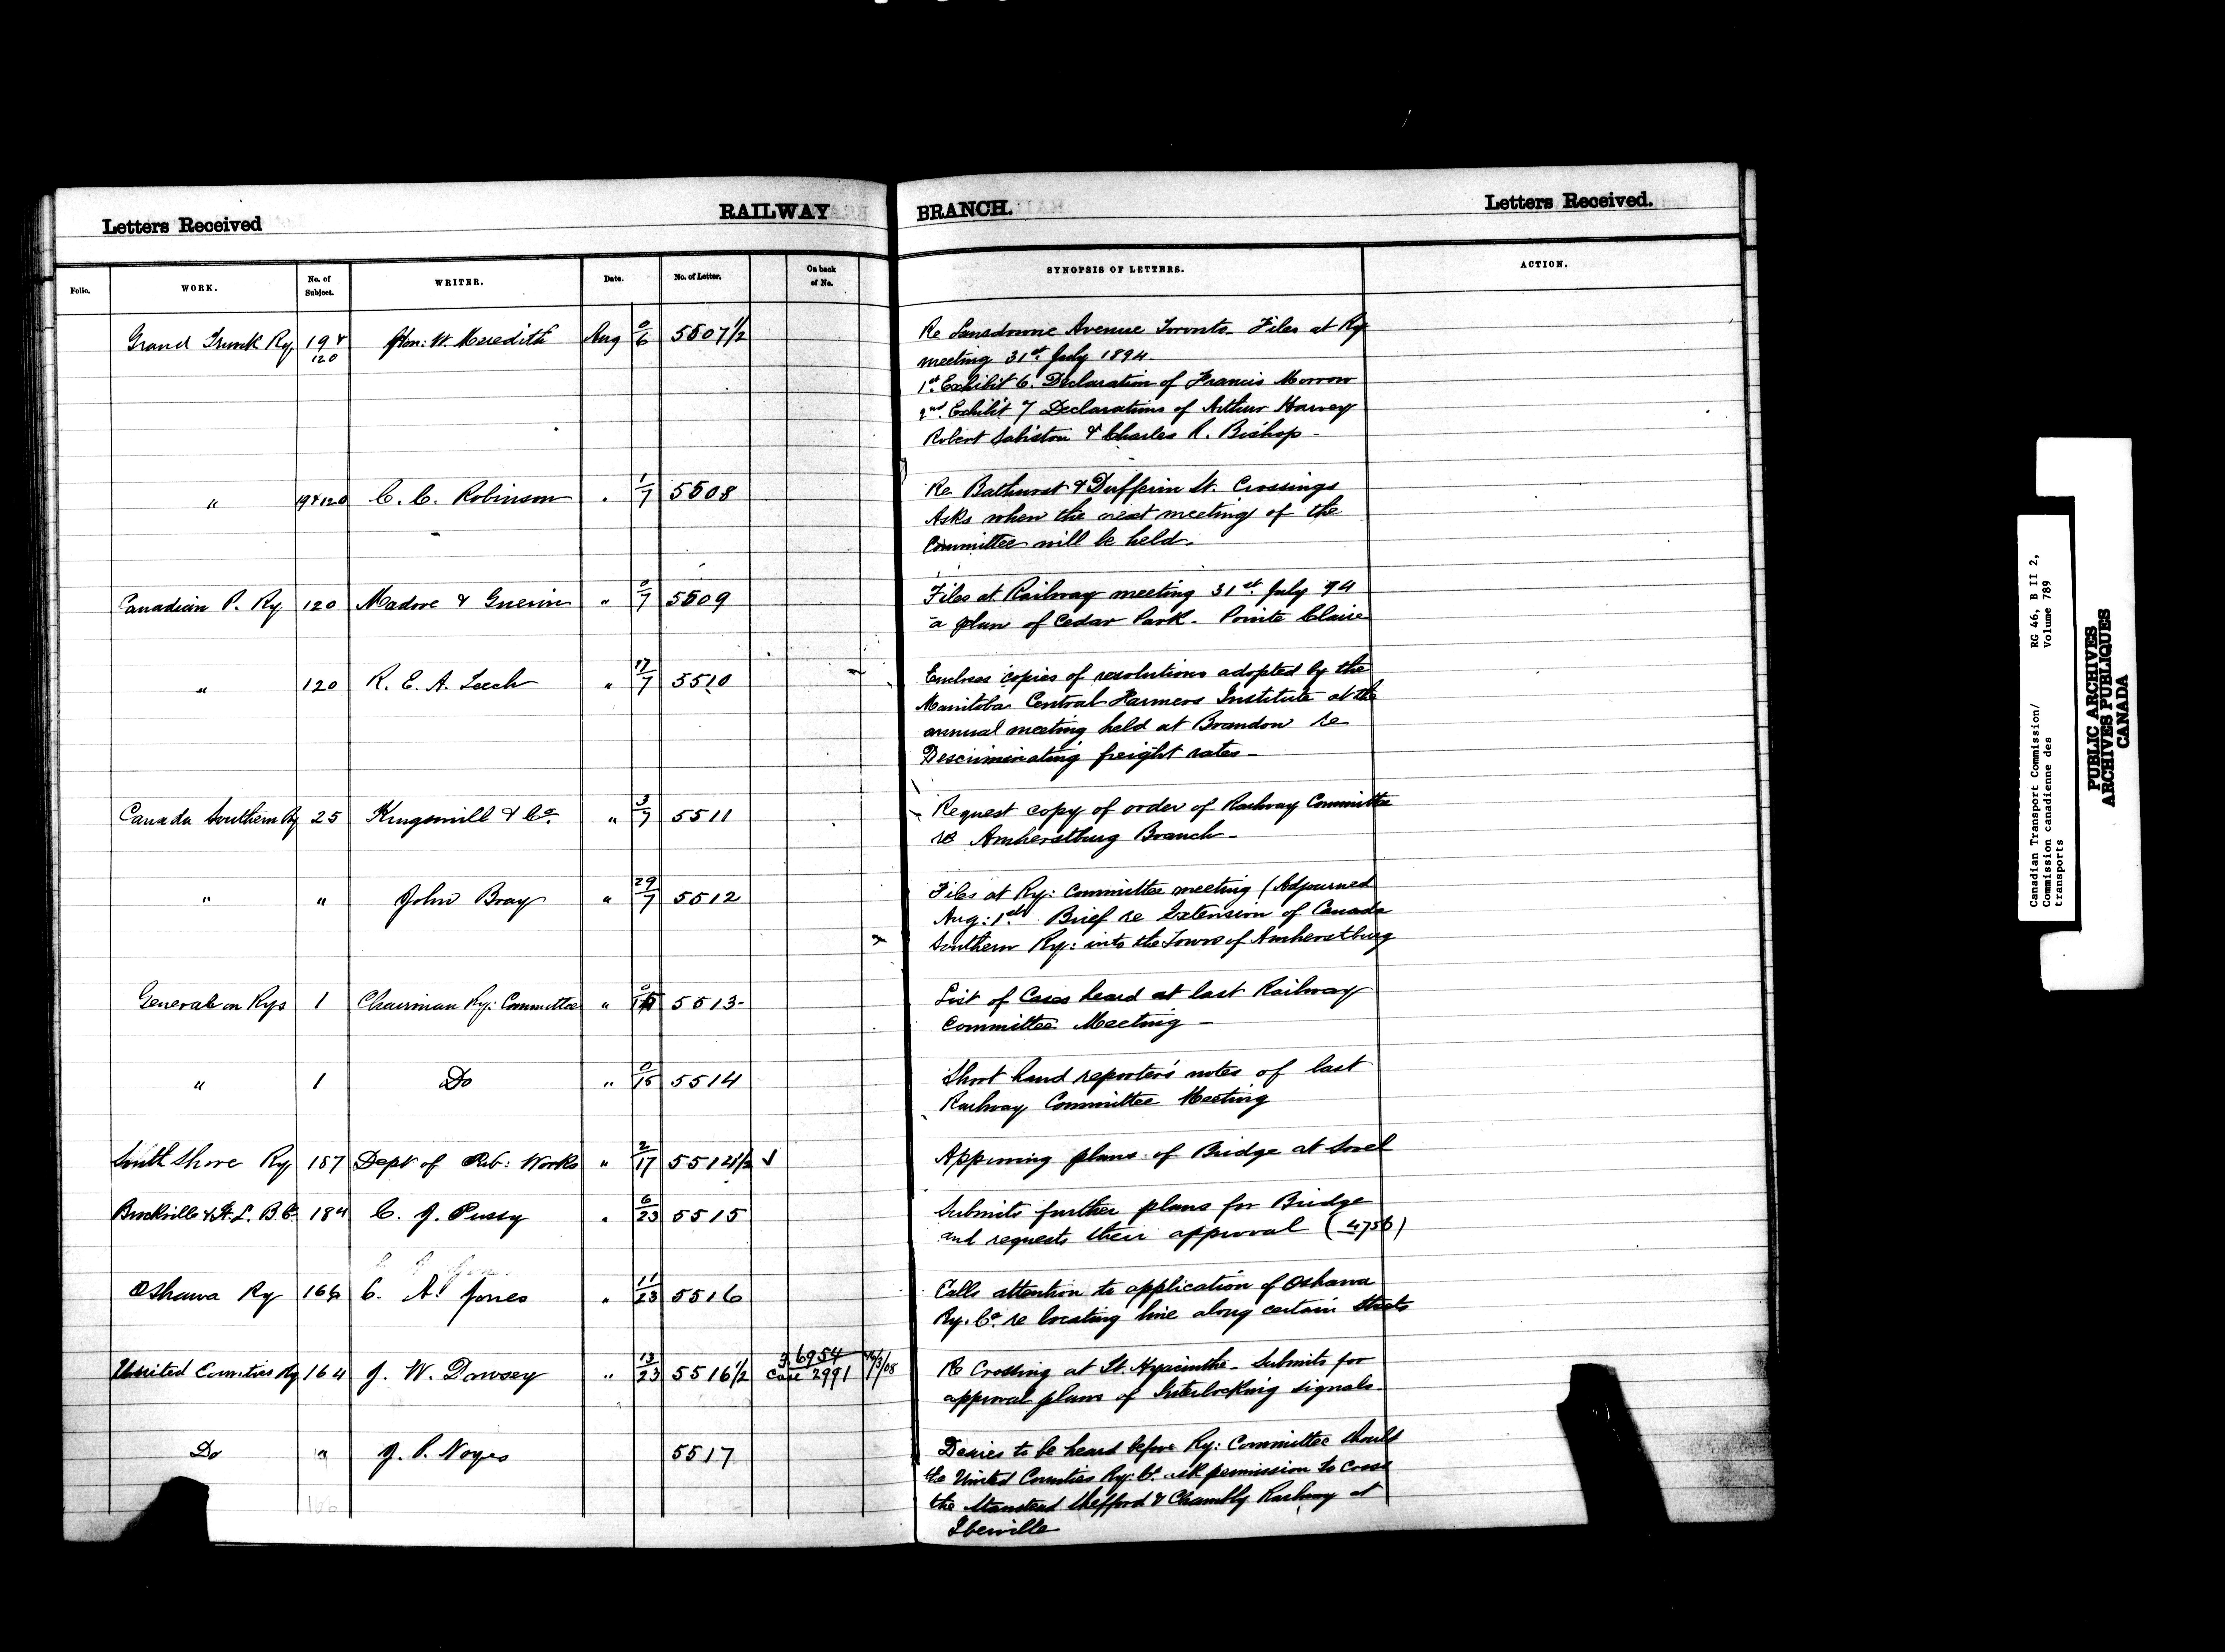 Letters Received
RAILWAY BRANCH.
Letters Received.
Folio. WORK. No. of Subject. WRITER. Date. No. of Letter. On back of No. SYNOPSIS OF LETTERS. ACTION.
Grand Trunk Ry 19 & 120 Hon: W. Meredith Aug 0/6 5507 1/2
Re Lansdowne Avenue Toronto. Files at Ry
meeting 31st July 1894.
1st Exhibit 6. Declaration of Francis Morrow
2nd Exhibit 7 Declarations of Arthur Harvey
Robert Sabiston & Charles R. Bishop -
" 19 & 120 C. C. Robinson " 1/7 5508
Re Bathurst & Dufferin St. Crossings
Asks when the next meeting of the
Committee will be held.
Canadian P. Ry 120 Madore & Guerin " 0/7 5509
Files at Railway meeting 31st July 94
a plan of Cedar Park - Pointe Claire
" 120 R. E. A. Leech " 17/7 5510
Encloses copies of resolutions adopted by the
Manitoba Central Farmers Institute at the
annual meeting held at Brandon re
Descriminating freight rates -
Canada Southern Ry 25 Kingsmill & Co. " 3/7 5511
Request copy of order of Railway Committee
re Amherstburg Branch -
" " John Bray " 29/7 5512
Files at Ry: Committee meeting (Adjourned
Aug: 1st Brief re Extension of Canada
Southern Ry: into the Town of Amherstburg
General on Rys 1 Chairman Ry: Committee " 0/15 5513-
List of Cases heard at last Railway
Committee Meeting -
" 1 Do " 0/15 5514
Short hand reporter's notes of last
Railway Committee Meeting
South Shore Ry 187 Dept of Pub: Works " 2/17 5514 1/2
Approving plans of Bridge at Sorel
Brockville & N. L. B. Co 184 C. J. Pusey " 6/23 5515
Submits further plans for Bridge
and requests their approval (4756)
Oshawa Ry 166 C. A. Jones " 11/23 5516
Calls attention to application of Oshawa
Ry. Co. re locating line along certain streets
United Counties Ry 164 J. W. Dowsey " 13/23 5516 1/2 6954 Case 2991
Re Crossing at St. Hyacinthe - Submits for
approval plans of Interlocking signals -
Do " J. P. Noyes 5517
Desires to be heard before Ry: Committee should
the United Counties Ry: Co. ask permission to cross
the Stanstead Shefford & Chambly Railway at
Iberville
Canadian Transport Commission/ RG 46, B II 2,
Commission canadienne des Volume 789
transports
PUBLIC ARCHIVES
ARCHIVES PUBLIQUES
CANADA